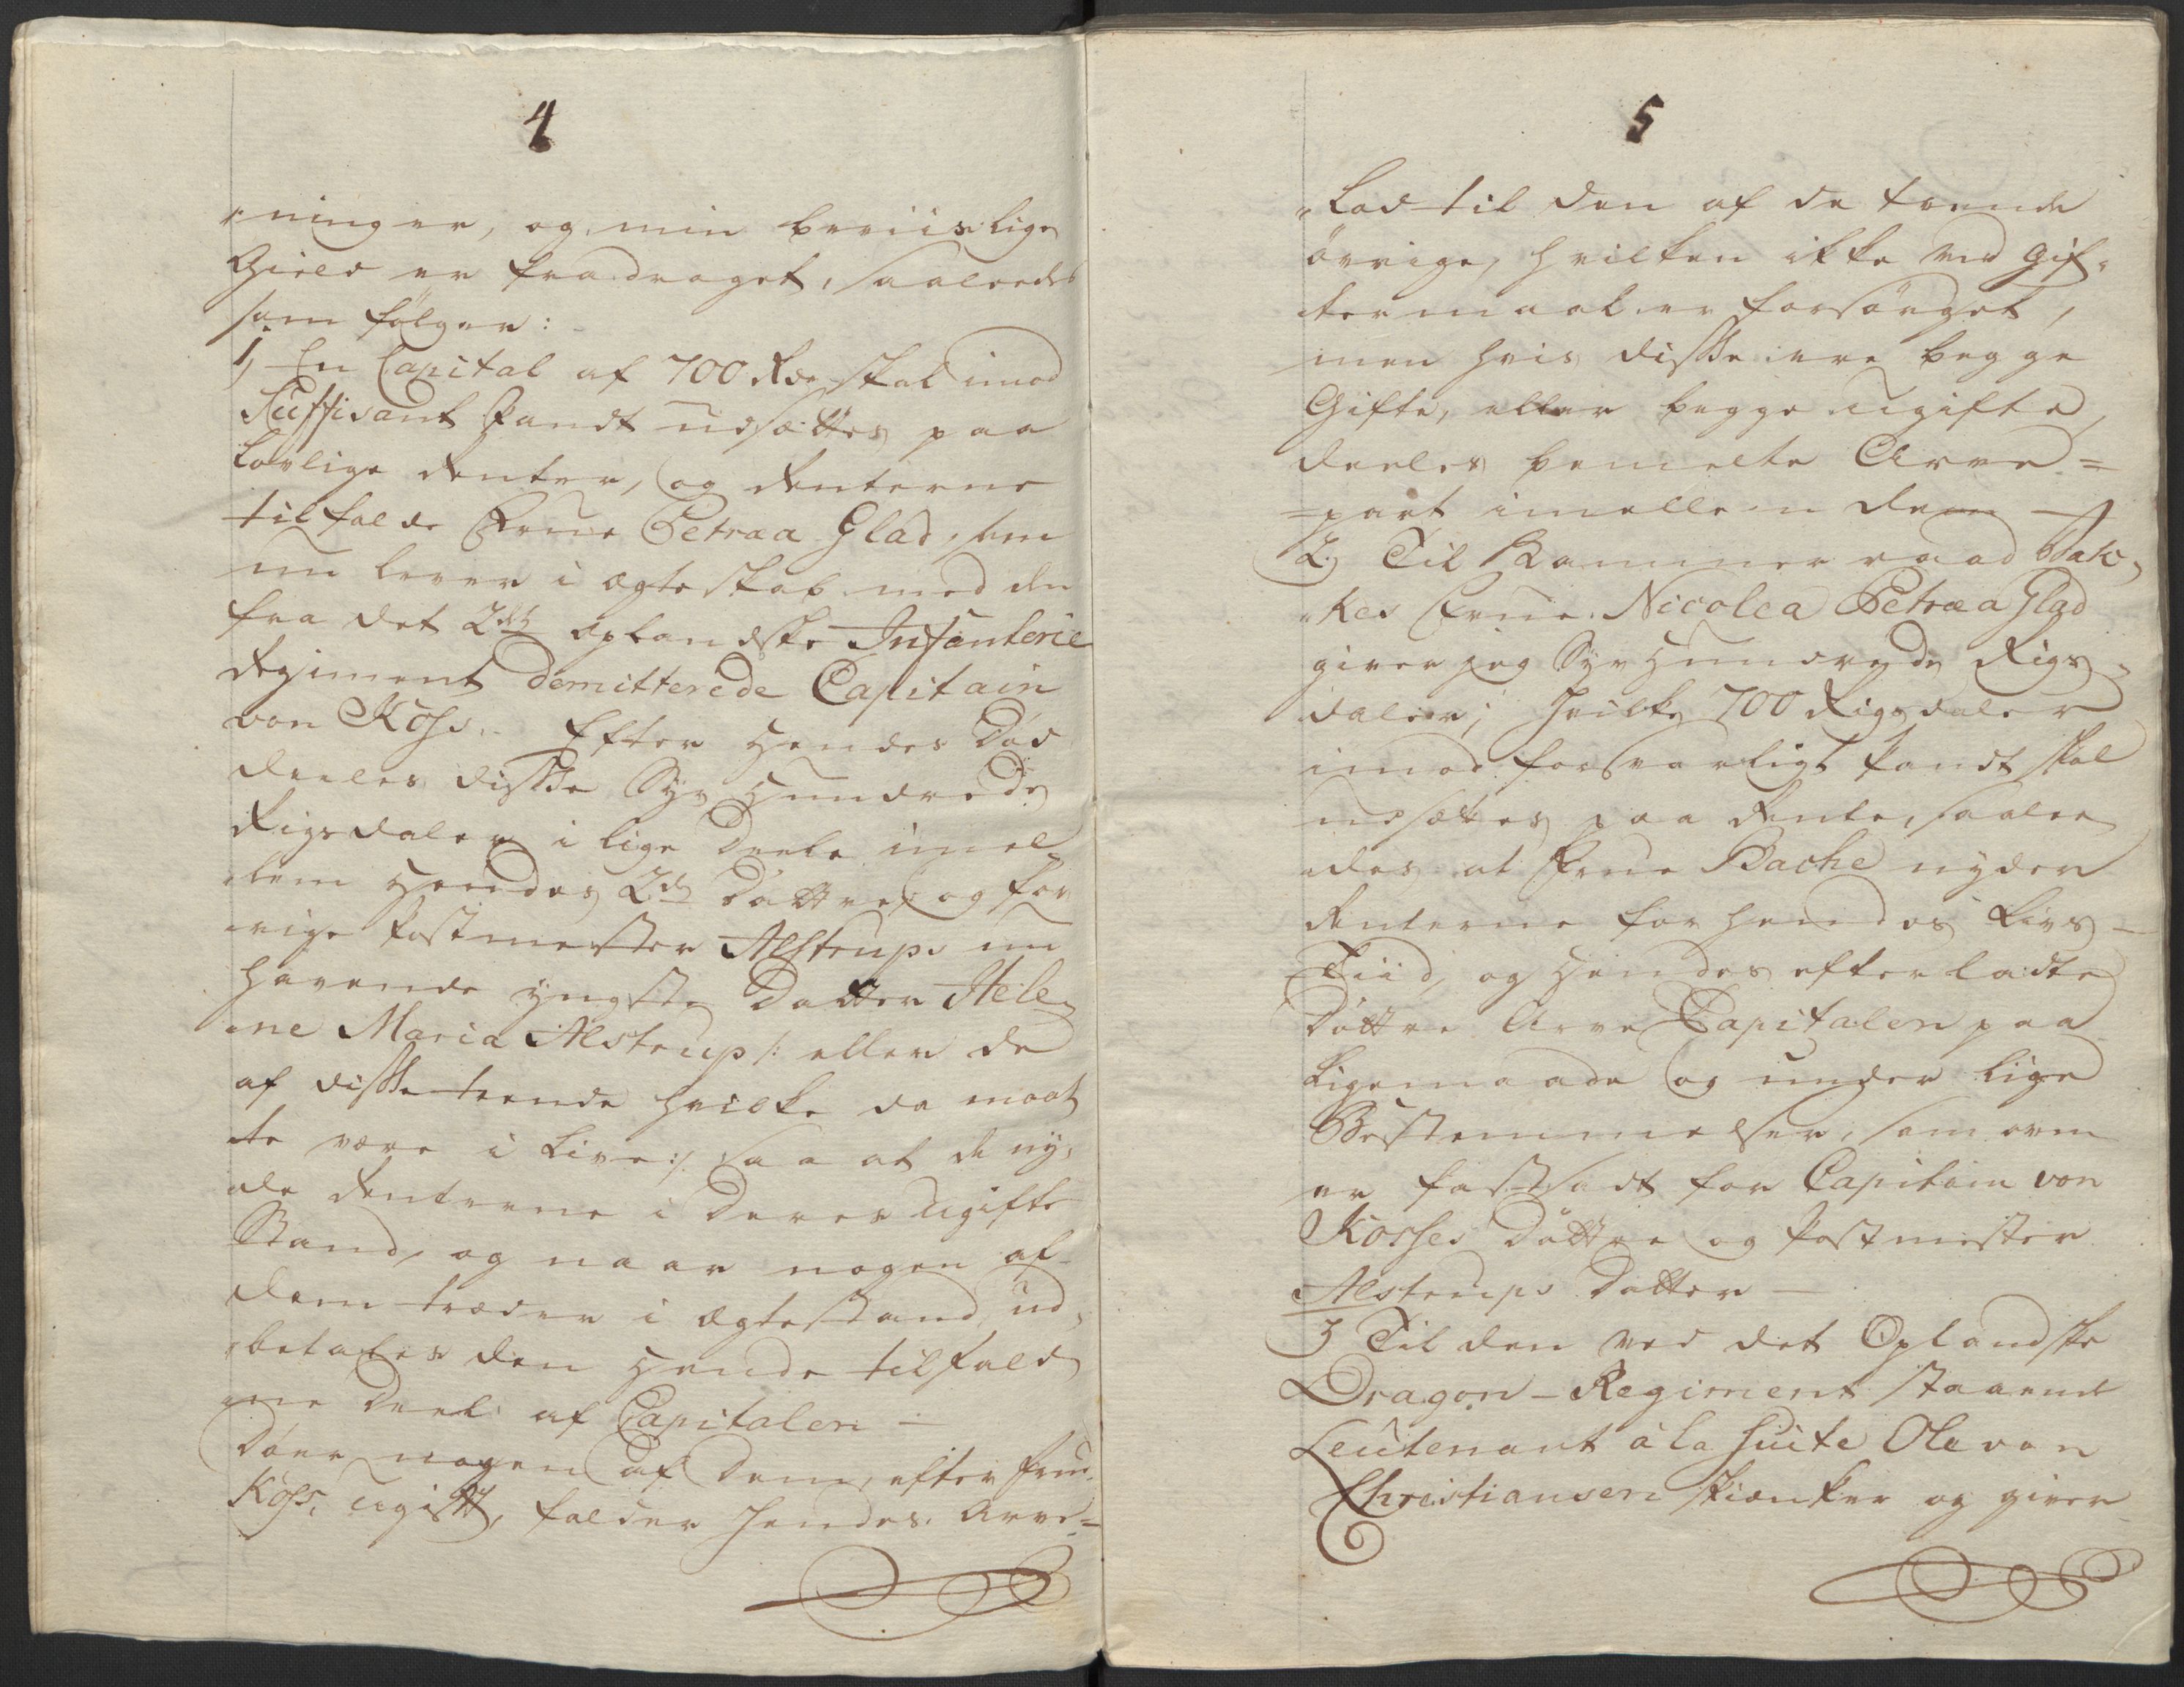 4
„ninger, og min beviislige
Gield er fradraget, saaledes
som følger:
1, En Capital af 700 Rdr skal imod
Suffisant Pandt udsættes paa
lovlige Renter, og Renterne
tilfalde Frue Petræa Glad, som
nu lever i Ægteskab med den
fra det 2det Oplandske Infanterie
Regiment demitterede Capitain
von Koss. Efter Hendes Død
deeles disse Syv Hundrede
Rigsdaler i lige Deele imel„
„lem Hendes 2de Døttre og for„
„rige Postmester Alstrups nu
havende yngste Datter Hele„
„ne Maria Alstrup /: eller de
af disse trende hvilke da maat„
„te være i Live :/ saa at de ny„
„de Renterne i Deres ugifte
Stand, og naar nogen af
dem træder i Ægtestand, ud„
„betales den Hende tilfald„
„ne Deel af Capitalen —
Døer nogen af Dem, efter Frue
Koss, ugift, falder Hendes Arve=
5
„Lod til den af de tvende
övrige, hvilken ikke ved Gif„
termaal er forsörget,
men hvis disse ere begge
Gifte, eller begge ugifte,
deeles bemelte Arve=
=part imellem dem —
2.) Til Kammerraad Bak„
„kes Frue Nicolea Petræa Glad
giver jeg Syv Hundrede Rigs„
daler; hvilke 700 Rigsdaler
imod forsvarligt Pandt skal
udsættes paa Rente, saalee
„des at Frue Bache nyder
Renterne for hendes Livs —
Tiid, og Hendes efterladte
Döttre Arve Capitalen paa
Ligemaade og under lige
Bestemmelser, som oven
er fastsadt for Capitain von
Kosses Döttre og Postmester
Alstrups Datter —
3 Til den ved det Oplandske
Dragon-Regiment staaende
Leutenant à la Suite Ole von
Christiansen skienker og giver